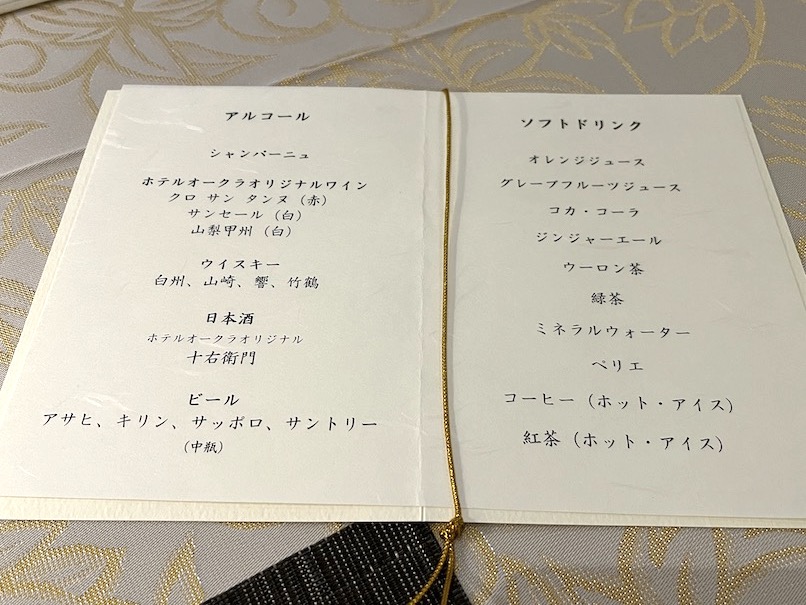 アルコール
シャンパーニュ
ホテルオークラオリジナルワイン
クロ サン タンヌ (赤)
サンセール (白)
山梨甲州 (白)
ウイスキー
白州、山崎、響、竹鶴
日本酒
ホテルオークラオリジナル
十右衛門
ビール
アサヒ、キリン、サッポロ、サントリー
(中瓶)
ソフトドリンク
オレンジジュース
グレープフルーツジュース
コカ・コーラ
ジンジャーエール
ウーロン茶
緑茶
ミネラルウォーター
ペリエ
コーヒー (ホット・アイス)
紅茶 (ホット・アイス)